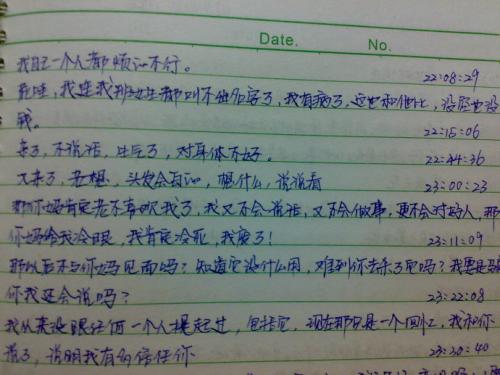 Date. No.
我自己一个人都烦的不行。 22:08:29
我连我班女生都叫不出名字了,我有病了,
我。 22:15:06
来了,不说话,生气了,对身体不好。 22:44:36
又来了,老想,头发会白的,想什么,说说看 23:00:23
那你妈肯定老不喜欢我了,我又不会说话,又不会做事,更不会对的人,那
你妈给我冷眼,我肯定冷死,我疯了! 23:11:09
那以后不与你妈见面吗?知道它没什么用,难到你去杀了它吗?我要是
你我还会说吗? 23:22:08
我从来没跟任何一个人提起过,包括它,现在那只是一个回忆,我和你
说了,说明我有多信任你 23:30:40